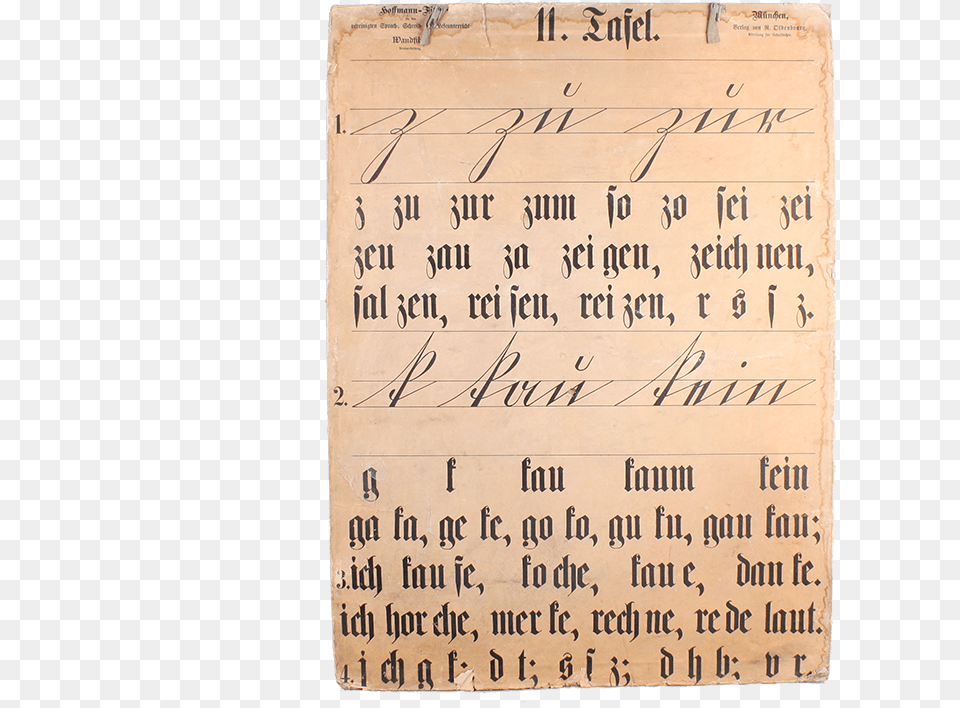 Hoffmann-
11. Tafel.
München,
vereinigten Sprech- Schreib- Leseunterricht
Verlag von R. Oldenbourg
1. z zu zur
z zu zur zum ſo zo ſei zei
zeu zau za zei gen, zeich nen,
ſal zen, rei ſen, rei zen, r s ſ z.
2. k kau kein
g k kau kaum kein
ga ka, ge ke, go ko, gu ku, gau kau;
3. ich kau fe, ko che, kau e, dan ke.
ich hor che, mer ke, rech ne, re de laut.
4. j ch g k; d t; s ſ z; d h b; v r.